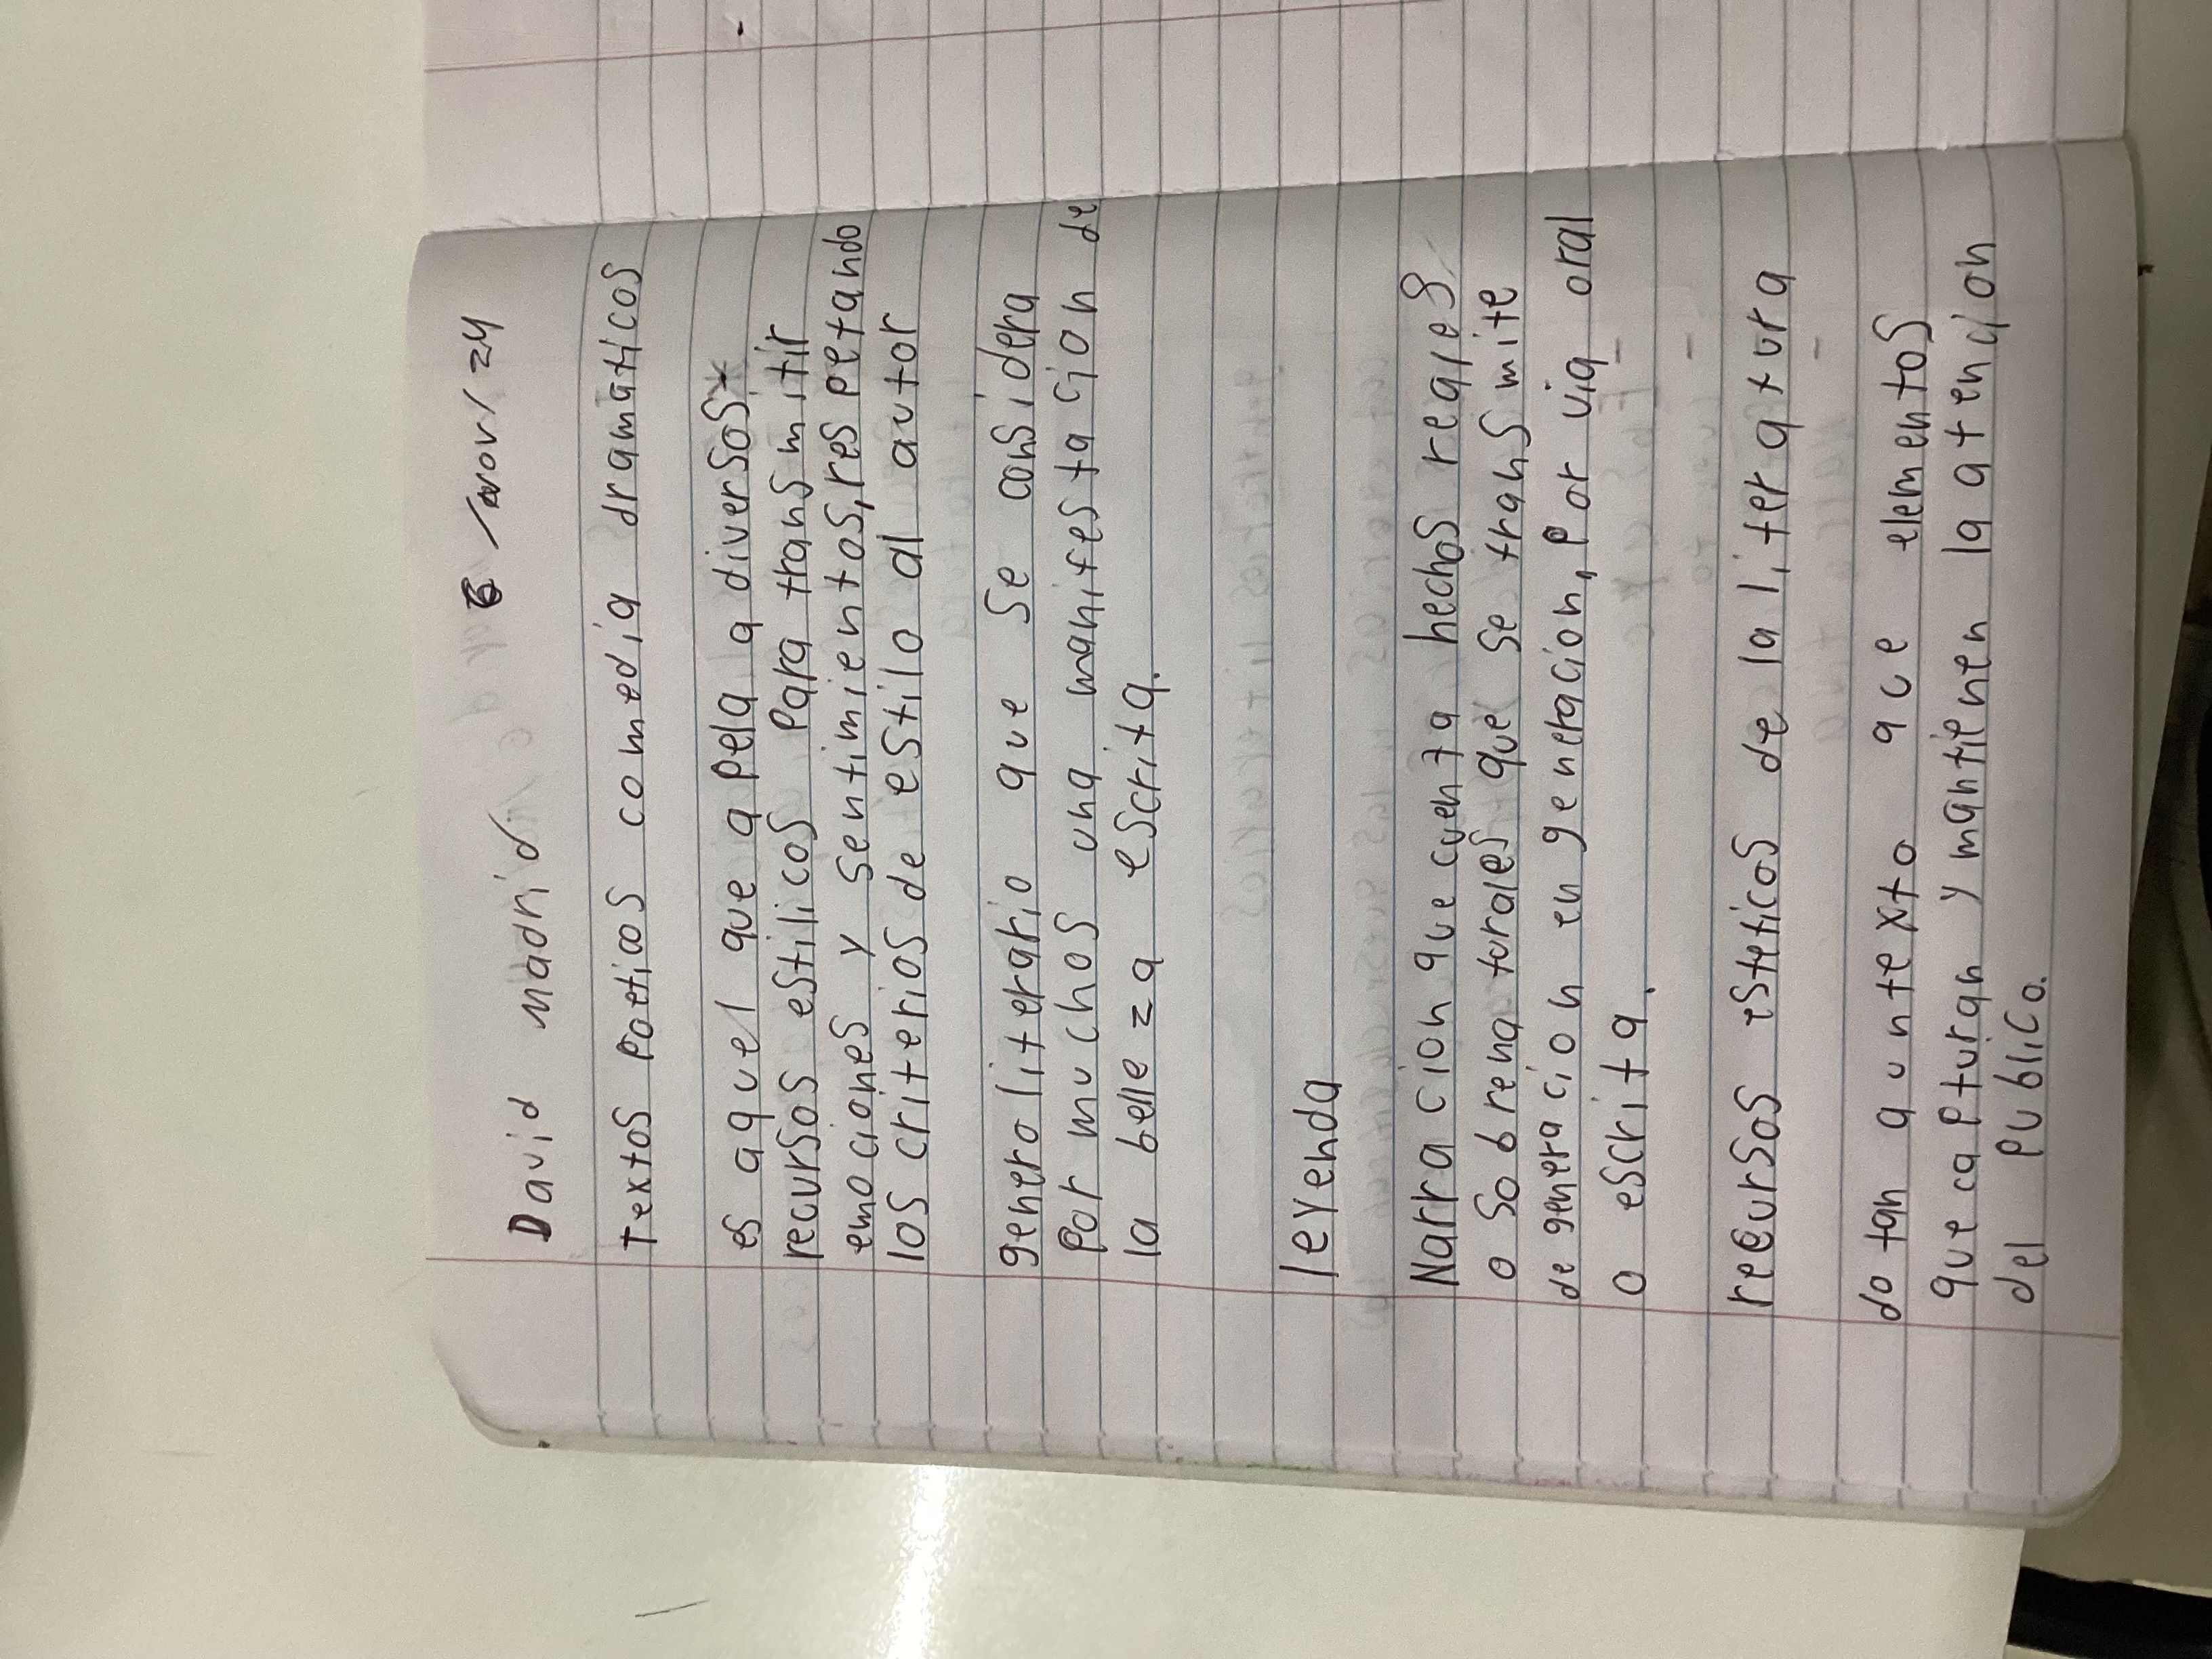 David madrid 6/nov/24
Textos Poeticos comedia dramaticos
es aquel que apela a diversos
recursos estilicos Para transmitir
emociones y sentimientos, respetando
los criterios de estilo al autor
genero literario que se considera
Por muchos una manifestacion de
la belleza escrita.
leyenda
Narracion que cuenta hechos reales
o sobrenaturales que se transmite
de generacion en generacion, Por via oral
o escrita.
recursos esteticos de la literatura
dotan a un texto que elementos
que capturan y mantienen la atencion
del Publico.